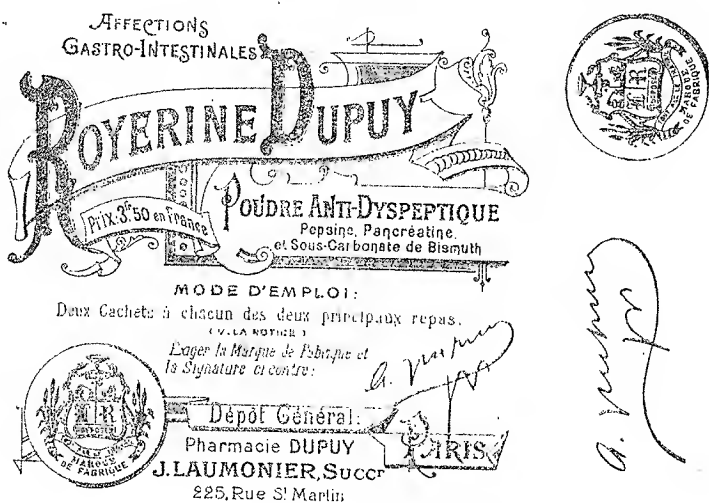 AFFECTIONS
GASTRO-INTESTINALES
ROYERINE DUPUY
Prix 3fr50 en France
POUDRE ANTI-DYSPEPTIQUE
Pepsine, Pancréatine,
et Sous-Carbonate de Bismuth
MODE D'EMPLOI:
Deux Cachets à chacun des deux principaux repas.
(V. LA NOTICE)
Exiger la Marque de Fabrique et
la Signature ci contre:
A. Dupuy
Dépôt Général:
PARIS
Pharmacie DUPUY
J. LAUMONIER, Succr
225, Rue St Martin
MARQUE
DE FABRIQUE
MARQUE
DE FABRIQUE
A. Dupuy